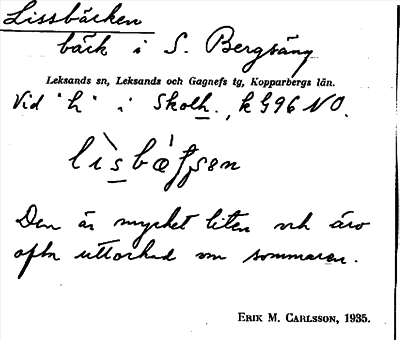 Lissbäcken
bäck i S. Bergsäng
Leksands sn, Leksands och Gagnefs tg, Kopparbergs län.
Vid "h" i Skolh., k G96 NO.
Den är mycket liten och äro
ofta uttorkad om sommaren.
ERIK M. CARLSSON, 1935.